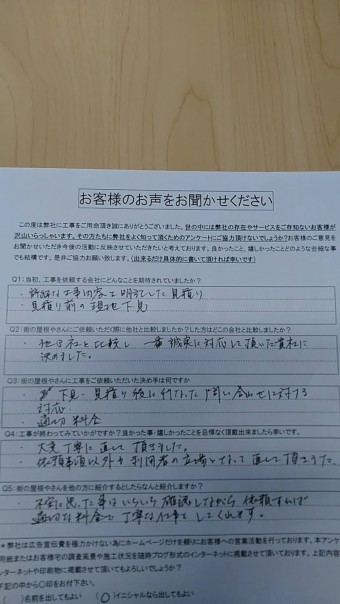 お客様のお声をお聞かせください
この度は弊社に工事をご用命頂き誠にありがとうございました。世の中には弊社の存在やサービスをご存知ないお客様が
沢山いらっしゃいます。その方たちに弊社をよく知って頂くためのアンケートにご協力頂けないでしょうか?お客様のご意見を
お聞かせいただき今後の活動に反映させていただきたいと考えております。良かったこと、嬉しかったことなどどのような些細な事
でも結構です。是非ご協力お願い致します。(出来るだけ具体的に書いて頂ければ幸いです)
Q1:当初、工事を依頼する会社にどんなことを期待されていましたか?
・詳細な工事内容を明記した見積り
・見積り前の現地下見
Q2:街の屋根やさんにご依頼いただく際に他社と比較しましたか?した方はどこの会社と比較しましたか?
・他2社と比較し、一番誠実に対応して頂いた貴社に
決めました。
Q3:街の屋根やさんに工事をご依頼いただいた決め手は何ですか
下見・見積り後に行なった問い合わせに対する
対応。
・適切料金
Q4:工事が終わってみていかがですか?良かった事・嬉しかったことを自慢など頂戴出来ましたら幸いです。
・大変丁寧に直して頂きました。
・依頼事項以外も利用者の立場となって直して頂きました。
Q5:街の屋根やさんを他の方に紹介するとしたらなんと紹介しますか?
・不安に思った事はいろいろ確認しながら依頼すれば
適切な料金で丁寧な仕事をしてくれます。
*弊社は広告宣伝費を極力かけない為にホームページだけを頼りにお客様への営業活動を行っております。本アンケ
用紙またはお客様での調査風景や施工状況を随時ブログ形式のインターネットに掲載させて頂いております。上記内容
ンターネットや印刷物に掲載させて頂いてもよろしいでしょうか?
下記の中から○印をお付下さい。
( )名前を出してもよい (○)イニシャルなら出してもよい